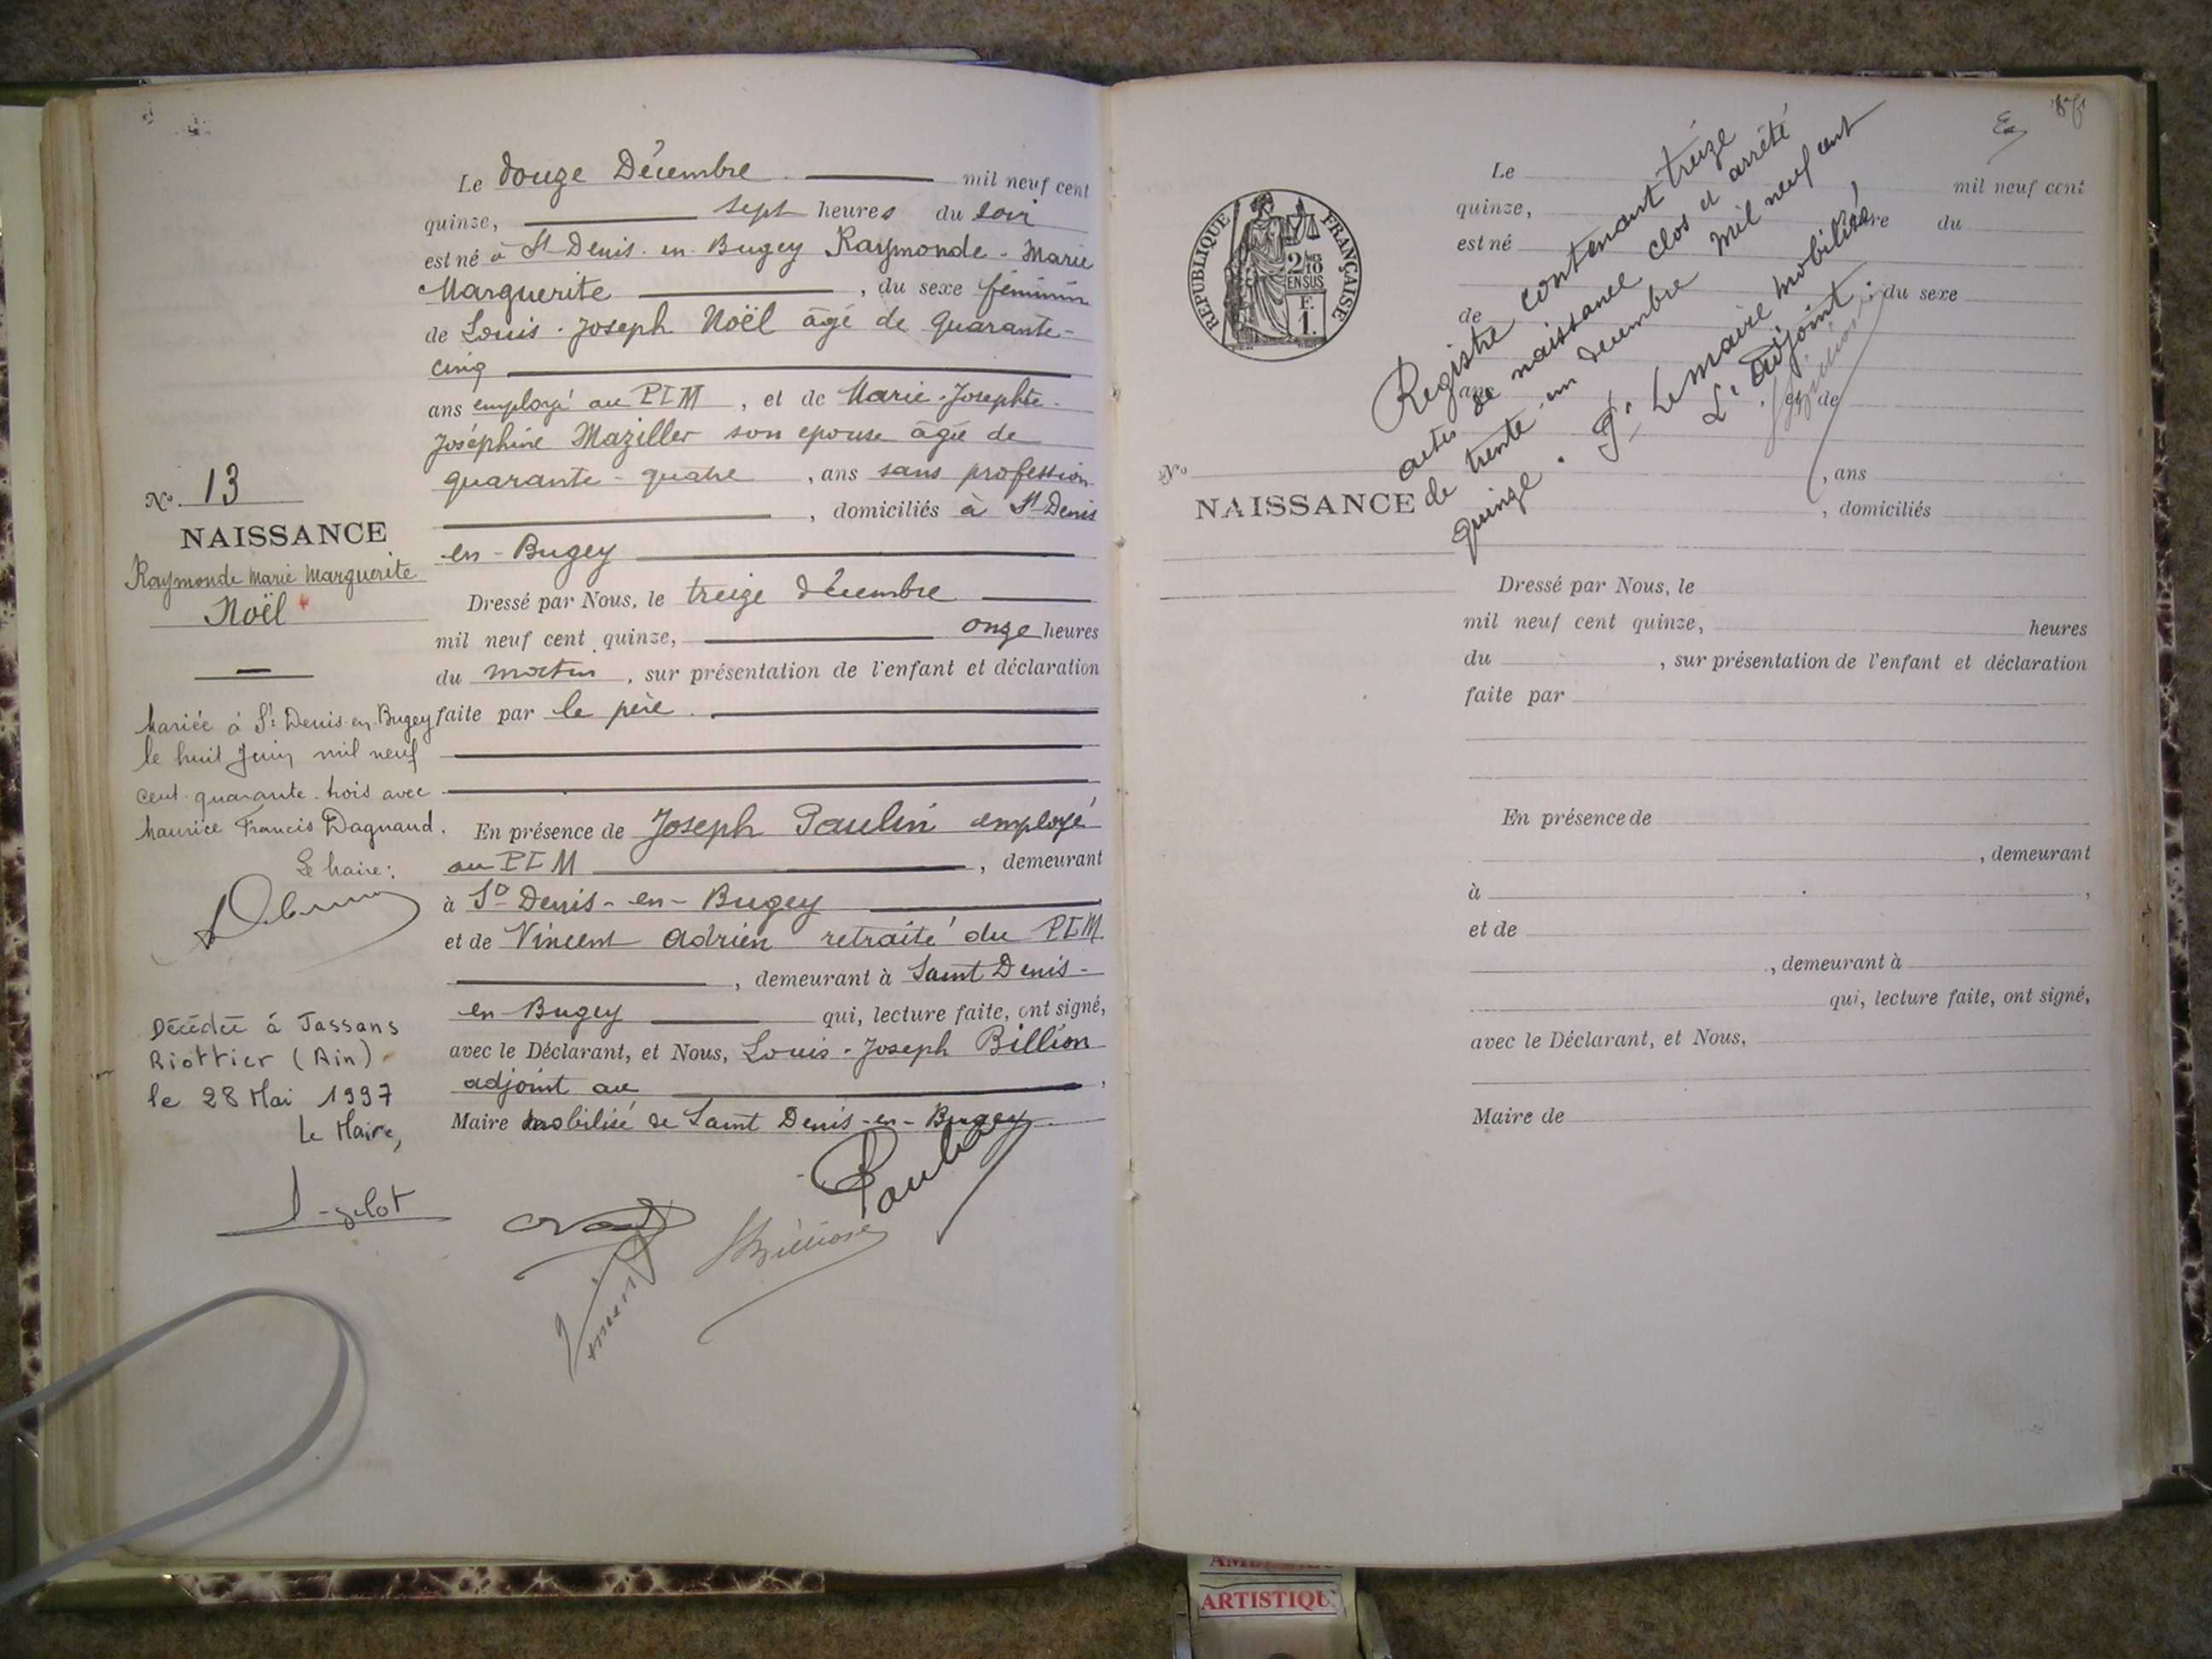 Le douze Décembre mil neuf cent
quinze, sept heures du soir
est né à St Denis-en-Bugey Raymonde-Marie
Marguerite , du sexe féminin
de Louis-Joseph Noël âgé de quarante-
cinq
ans employé au PLM , et de Marie-Josephte-
Joséphine Maziller son epouse âgée de
quarante-quatre , ans sans profession
, domiciliés à St Denis
en-Bugey
Dressé par Nous, le treize décembre
mil neuf cent quinze, onze heures
du matin , sur présentation de l'enfant et déclaration
faite par le père.
En présence de Joseph Paulin employé
au PLM , demeurant
à St Denis-en-Bugey
et de Vincent Adrien retraité du PLM
, demeurant à Saint Denis-
en Bugey qui, lecture faite, ont signé,
avec le Déclarant, et Nous, Louis-Joseph Billion
adjoint au ,
Maire mobilisé de Saint Denis-en-Bugey.
Paulin
Billion
Vincent
No. 13
NAISSANCE
Raymonde Marie Marguerite
Noël
Mariée à St Denis-en-Bugey
le huit Juin mil neuf
cent-quarante-trois avec
Maurice Francis Dagnaud.
Le Maire:
Décédée à Jassans
Riottier (Ain)
le 28 Mai 1997
Le Maire,
REPUBLIQUE FRANÇAISE
2/10
EN SUS
F.
1.
Le mil neuf cent
quinze, heure du
est né
, du sexe
de
ans , et de
, ans
, domiciliés
No
NAISSANCE
Registre contenant treize
actes de naissance clos et arrêté
de trente-un decembre mil neuf cent
quinze. Pr Le maire mobilisé,
L'Adjoint:
Billion
Dressé par Nous, le
mil neuf cent quinze, heures
du , sur présentation de l'enfant et déclaration
faite par
En présence de
, demeurant
à ,
et de
, demeurant à
qui, lecture faite, ont signé,
avec le Déclarant, et Nous,
Maire de
ARTISTIQU